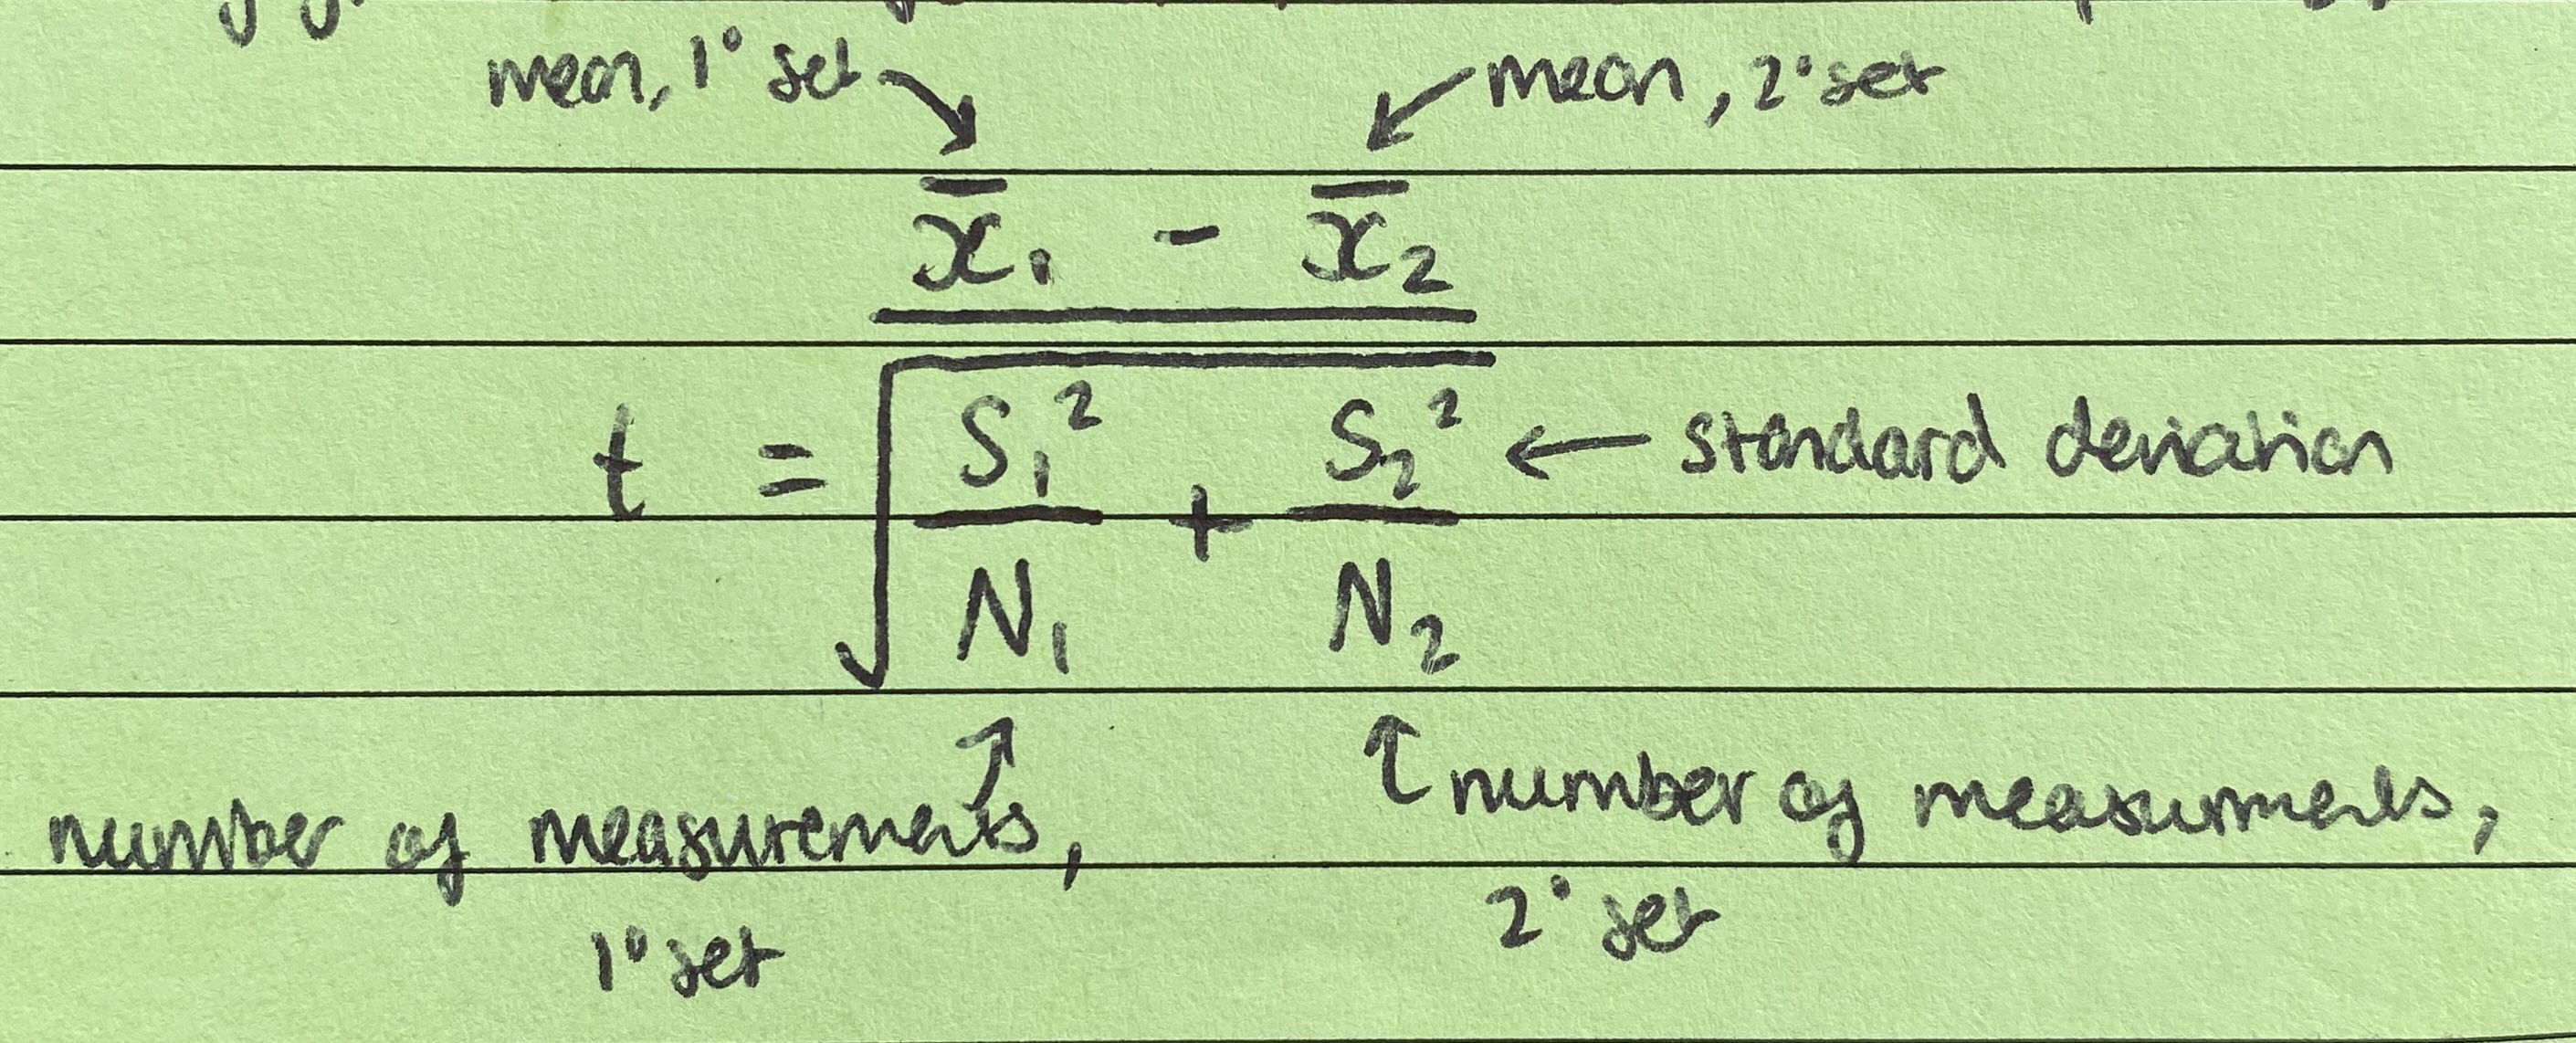 mean, 1° set
mean, 2° set
x̄₁ - x̄₂
t = √
S₁² + S₂²
N₁ N₂
← standard deviation
number of measurements,
1° set
number of measurments,
2° set